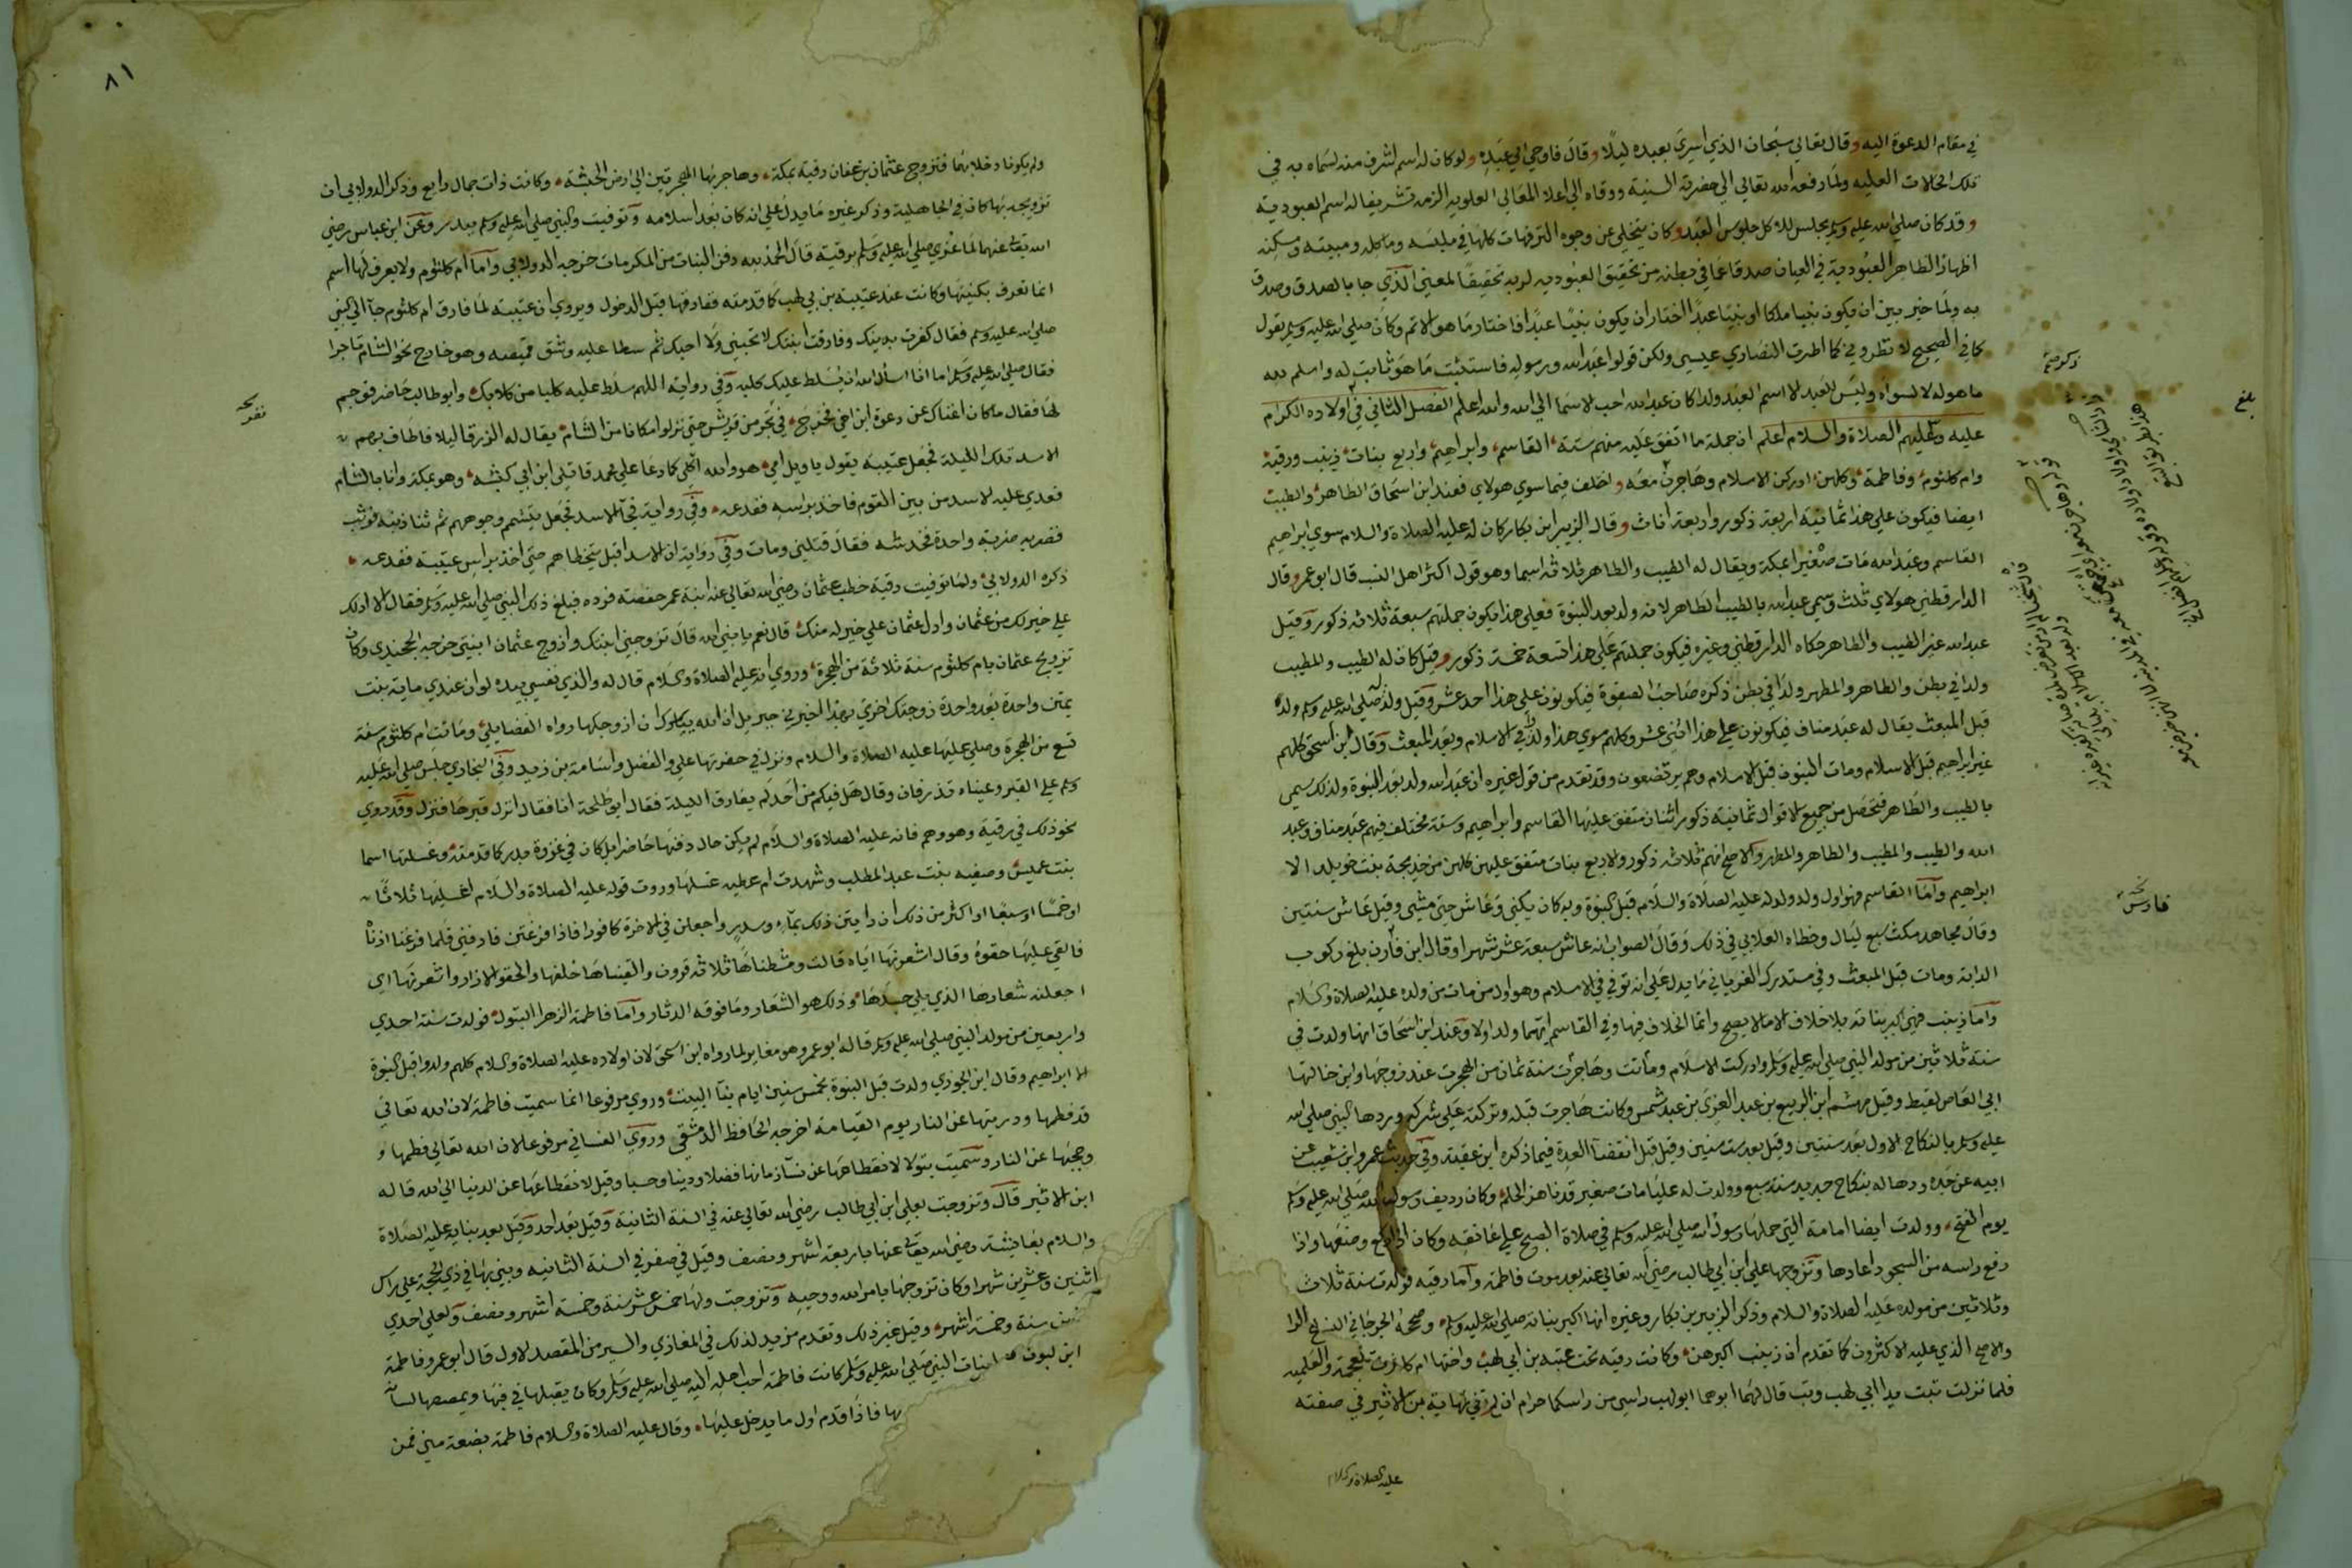 في مقام الدعوة اليه وقال تعالي سبحان الذي اسري بعبده ليلا وقال فاوحي الي عبده ولو كان له اسم اشرف منه لسماه به في
تلك الحالات العليه ولما رفعه الله تعالي الي حضرته السنيه ورقاه الي اعلا المعالي العلويه الزمه تشريفا له اسم العبوديه
وقد كان صلي الله عليه وسلم يجلس للاكل جلوس العبد وكان يتخلي عن وجوه الترفهات كلها في ملبسه وماكله ومبيته ومسكنه
اظهارا لظاهر العبودية في العيان صدقا عما في بطنه من تحقيق العبوديه لربه تحقيقا لمعني الذي جا بالصدق وصدق
به ولما خير بين ان يكون نبيا ملكا او نبيا عبدا اختار ان يكون نبيا عبدا فاختار ما هو الاتم وكان صلي الله عليه وسلم يقول
كما في الصحيح لا تطروني كما اطرت النصاري عيسي ولكن قولوا عبد الله ورسوله فاستثبت ما هو ثابت له واسلم لله
ما هو له لا لسواه وليس للعبد الا اسم العبد ولذا كان عبد الله احب الاسما الي الله والله اعلم الفصل الثاني في اولاده الكرام
عليه وعليهم الصلاة والسلام اعلم ان جملة ما اتفق عليه منهم ستة القاسم وابراهيم واربع بنات زينب ورقية
وام كلثوم وفاطمة وكلهن ادركن الاسلام وهاجرن معه واختلف فيما سوي هولاي فعند ابن اسحاق الطاهر والطيب
ايضا فيكون علي هذا ثمانية اربعة ذكور واربعة اناث وقال الزبير ابن بكار كان له عليه الصلاة والسلام سوي ابراهيم
القاسم وعبد الله مات صغيرا بمكة ويقال له الطيب والطاهر ثلاثه اسما وهو قول اكثر اهل النسب قال ابو عمر وقال
الدارقطني هولاي ثلث وسمي عبد الله بالطيب الطاهر لانه ولد بعد النبوة فعلي هذا يكون جملتهم سبعة ثلاثه ذكور وقيل
عبد الله غير الطيب والطاهر حكاه الدارقطني وغيره فيكون جملتهم علي هذا تسعة خمسة ذكور وقيل كان له الطيب والمطيب
ولدا في بطن والطاهر والمطهر ولدا في بطن ذكره صاحب الصفوة فيكونون علي هذا احد عشر وقيل ولد له صلي الله عليه وسلم ولد
قبل المبعث يقال له عبد مناف فيكونون علي هذا اثني عشر وكلهم سوي هذا ولد في الاسلام وبعد المبعث وقال ابن اسحق كلهم
غير ابراهيم قبل الاسلام ومات البنون قبل الاسلام وهم يرتضعون وقد تقدم من قول غيره ان عبد الله ولد بعد النبوة ولذلك سمي
بالطيب والطاهر فتحصل من جميع الاقوال ثمانية ذكور اثنان متفق عليها القاسم وابراهيم وستة مختلف فيهم عبد مناف وعبد
الله والطيب والمطيب والطاهر والمطهر والاصح انهم ثلاثه ذكور والاربع بنات متفق عليهن كلهن من خديجة بنت خويلد الا
ابراهيم واما القاسم فهو اول ولد ولد له عليه الصلاة والسلام قبل النبوة وبه كان يكني وعاش حتي مشي وقيل عاش سنتين
وقال مجاهد مكث سبع ليال وخطاه الغلابي في ذلك وقال الصواب انه عاش سبعة عشر شهرا وقال ابن فارن بلغ ركوب
الدابة ومات قبل المبعث وفي مستدرك الفريابي ما يدل علي انه توفي في الاسلام وهو اول من مات من ولده عليه الصلاة والسلام
واما زينب فهي اكبر بناته بلا خلاف الا ما لا يصح وانما الخلاف فيها وفي القاسم ايهما ولد اولا وعند ابن اسحاق انها ولدت في
سنة ثلاثين من مولد النبي صلي الله عليه وسلم وادركت الاسلام وهاجرت وماتت سنة ثمان من الهجرت عند زوجها وابن خالتها
ابي العاص لقيط وقيل مهشم ابن الربيع بن عبد العزي بن عبد شمس وكانت هاجرت قبله وتركته علي شركه وردها النبي صلي الله
عليه وسلم بالنكاح الاول بعد سنتين وقيل بعد ست سنين وقيل قبل انقضا العدة فيما ذكره ابن عقبة وفي حديث عمرو ابن شعيب عن
ابيه عن جده ردها له بنكاح جديد سنة سبع وولدت له عليا مات صغير قد ناهز الحلم وكان رديف رسول الله صلي الله عليه وسلم
يوم الفتح وولدت ايضا امامة التي حملها رسول الله صلي الله عليه وسلم في صلاة الصبح علي عاتقه وكان اذا ركع وضعها واذا
رفع راسه من السجود اعادها وتزوجها علي ابن ابي طالب رضي الله تعالي عنه بعد موت فاطمة واما رقيه فولدت سنة ثلاث
وثلاثين من مولده عليه الصلاة والسلام وذكر الزبير بن بكار وغيره انها اكبر بناته صلي الله عليه وسلم وصححه الجرجاني النسابه
والاصح الذي عليه الاكثرون كما تقدم ان زينب اكبرهن وكانت رقيه تحت عتبه بن ابي لهب واختها ام كلثوم تحت عتيبة
فلما نزلت تبت يدا ابي لهب وتب قال لهما ابوهما ابو لهب راسي من راسكما حرام ان لم في نهاية ابن الاثير في صفته
عليه الصلاة والسلام
بلغ
نسخه
فارس
٨١
ولم يكونا دخلا بهما فتزوج عثمان بن عفان رقية بمكة وهاجر بها الهجرتين الي ارض الحبشة وكانت ذات جمال رايع وذكر الدولابي ان
تزويجه بها كان في الجاهلية وذكر غيره ما يدل علي انه كان بعد اسلامه وتوفيت والنبي صلي الله عليه وسلم ببدر وعن ابن عباس رضي
الله تعالي عنهما لما عزي صلي الله عليه وسلم برقية قال الحمد لله دفن البنات من المكرمات خرجه الدولابي واما ام كلثوم ولا يعرف لها اسم
انما تعرف بكنيتها وكانت عند عتيبة بن ابي لهب كما قدمته ففارقها قبل الدخول ويروي ان عتيبة لما فارق ام كلثوم جا الي النبي
صلي الله عليه وسلم فقال كفرت بدينك وفارقت ابنتك لا تحبني ولا احبك ثم سطا عليه وشق قميصه وهو خارج نحو الشام تاجرا
فقال صلي الله عليه وسلم اما انا اسأل الله ان يسلط عليك كلبه وفي رواية اللهم سلط عليه كلبا من كلابك وابو طالب حاضر فوجم
لها فقال ما كان اغناك عن دعوة ابن اخي فخرج في تجر من قريش حتي نزلوا مكانا من الشام يقال له الزرقا ليلا فاطاف بهم
الاسد تلك الليلة فجعل عتيبة يقول يا ويل امي هو والله اكلي كما دعا علي محمد قاتلي ابن ابي كبشه وهو بمكة وانا بالشام
فعدي عليه الاسد من بين القوم فاخذ براسه ففدعه وفي رواية فجا الاسد فجعل يتشمم وجوههم ثم ثنا ذنبه فوثب
فضربه ضربة واحدة فخدشه فقال قتلني ومات وفي رواية ان الاسد اقبل يتخطاهم حتي اخذ براس عتيبة ففدعه
ذكره الدولابي ولما توفيت رقية خطب عثمان رضي الله تعالي عنه ابنة عمر حفصة فرده فبلغ ذلك النبي صلي الله عليه وسلم فقال الا ادلك
علي خير لك من عثمان وادل عثمان علي خير له منك قال نعم يا نبي الله قال تزوجني ابنتك وازوج عثمان ابنتي خرجه الخجندي وكان
تزويج عثمان بام كلثوم سنة ثلاثة من الهجرة وروي انه عليه الصلاة والسلام قال له والذي نفسي بيده لو ان عندي ماية بنت
يمتن واحدة بعد واحدة زوجتك اخري هذا جبريل اخبرني ان الله يامرك ان ازوجكها رواه الفضايلي وماتت ام كلثوم سنة
تسع من الهجرة وصلي عليها عليه الصلاة والسلام ونزل في حفرتها علي والفضل واسامة بن زيد وفي البخاري جلس صلي الله عليه
وسلم علي القبر وعيناه تذرفان وقال هل فيكم من احد لم يقارف الليلة فقال ابو طلحة انا فقال انزل قبرها فنزل وقد روي
نحو ذلك في رقية وهو وهم فانه عليه الصلاة والسلام لم يكن حال دفنها حاضرا بل كان في غزوة بدر كما قدمته وغسلتها اسما
بنت عميس وصفيه بنت عبد المطلب وشهدت ام عطيه غسلها وروت قوله عليه الصلاة والسلام اغسلنها ثلاثا
او خمسا او سبعا او اكثر من ذلك ان رايتن ذلك بماء وسدر واجعلن في الاخرة كافورا فاذا فرغتن فاذنني فلما فرغنا اذناه
فالقي علينا حقوه وقال اشعرنها اياه قالت ومشطناها ثلاثه قرون والقيناها خلفها والحقو الازار واشعرنها اي
اجعلنه شعارها الذي يلي جسدها وذلك هو الشعار وما فوقه الدثار واما فاطمة الزهرا البتول فولدت سنة احدي
واربعين من مولد النبي صلي الله عليه وسلم قاله ابو عمر وهو مغاير لما رواه ابن اسحق لان اولاده عليه الصلاة والسلام كلهم ولدوا قبل النبوة
الا ابراهيم وقال ابن الجوزي ولدت قبل النبوة بخمس سنين ايام بنا البيت وروي مرفوعا انما سميت فاطمة لان الله تعالي
قد فطمها وذريتها عن النار يوم القيامة اخرجه الحافظ الدمشقي وروي الغساني مرفوعا لان الله تعالي فطمها و
وحجبها عن النار وسميت بتولا لانقطاعها عن نسا زمانها فضلا ودينا وحسبا وقيل لانقطاعها عن الدنيا الي الله قاله
ابن الاثير قال وتزوجت بعلي ابن ابي طالب رضي الله تعالي عنه في السنة الثانية وقيل بعد احد وقيل بعد بنايه عليه الصلاة
والسلام بعايشة رضي الله تعالي عنها باربعة اشهر ونصف وقيل في صفر في السنة الثانيه وبني بها في ذي الحجة علي راس
اثنين وعشرين شهرا وكان تزوجها بامر الله ووحيه وتزوجت ولها خمس عشر سنة وخمسة اشهر ونصف ولعلي احدي
سنة وخمسة اشهر وقيل غير ذلك وتقدم مزيد لذلك في المغازي والسير من المقصد الاول قال ابو عمر وفاطمة
بنات النبي صلي الله عليه وسلم كانت فاطمة احب اهله اليه صلي الله عليه وسلم وكان يقبلها في فيها ويمصها لسانه
بها فاذا قدم اول ما يدخل عليها وقال عليه الصلاة والسلام فاطمة بضعة مني فمن